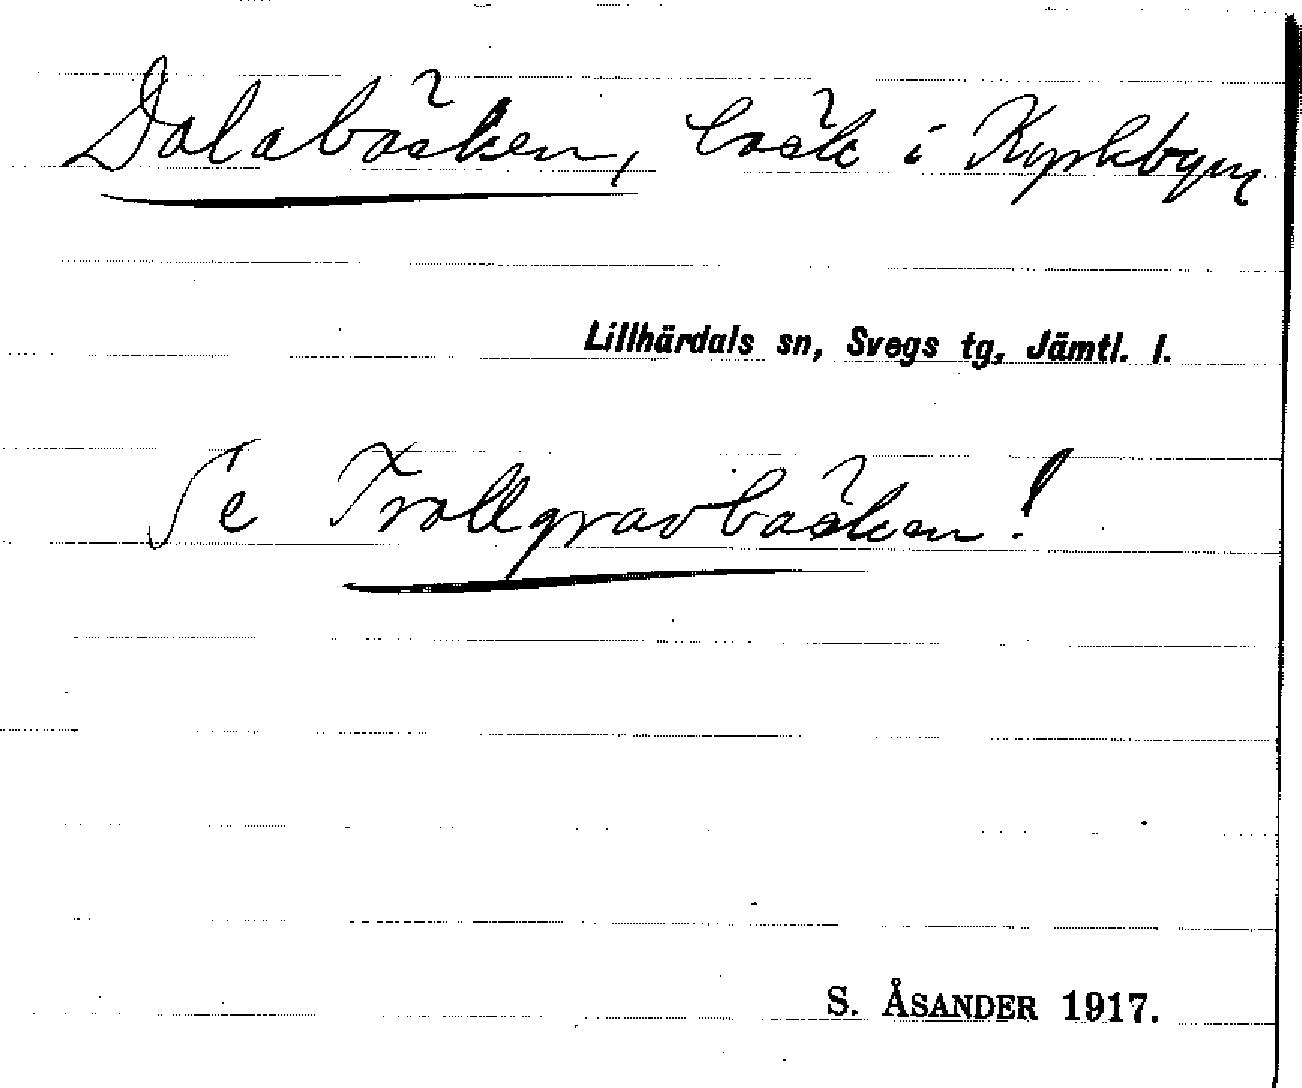 Dalabäcken, bäck i Kyrkbyn
Lillhärdals sn, Svegs tg, Jämtl. l.
Se Trollgravbäcken!
S. ÅSANDER 1917.